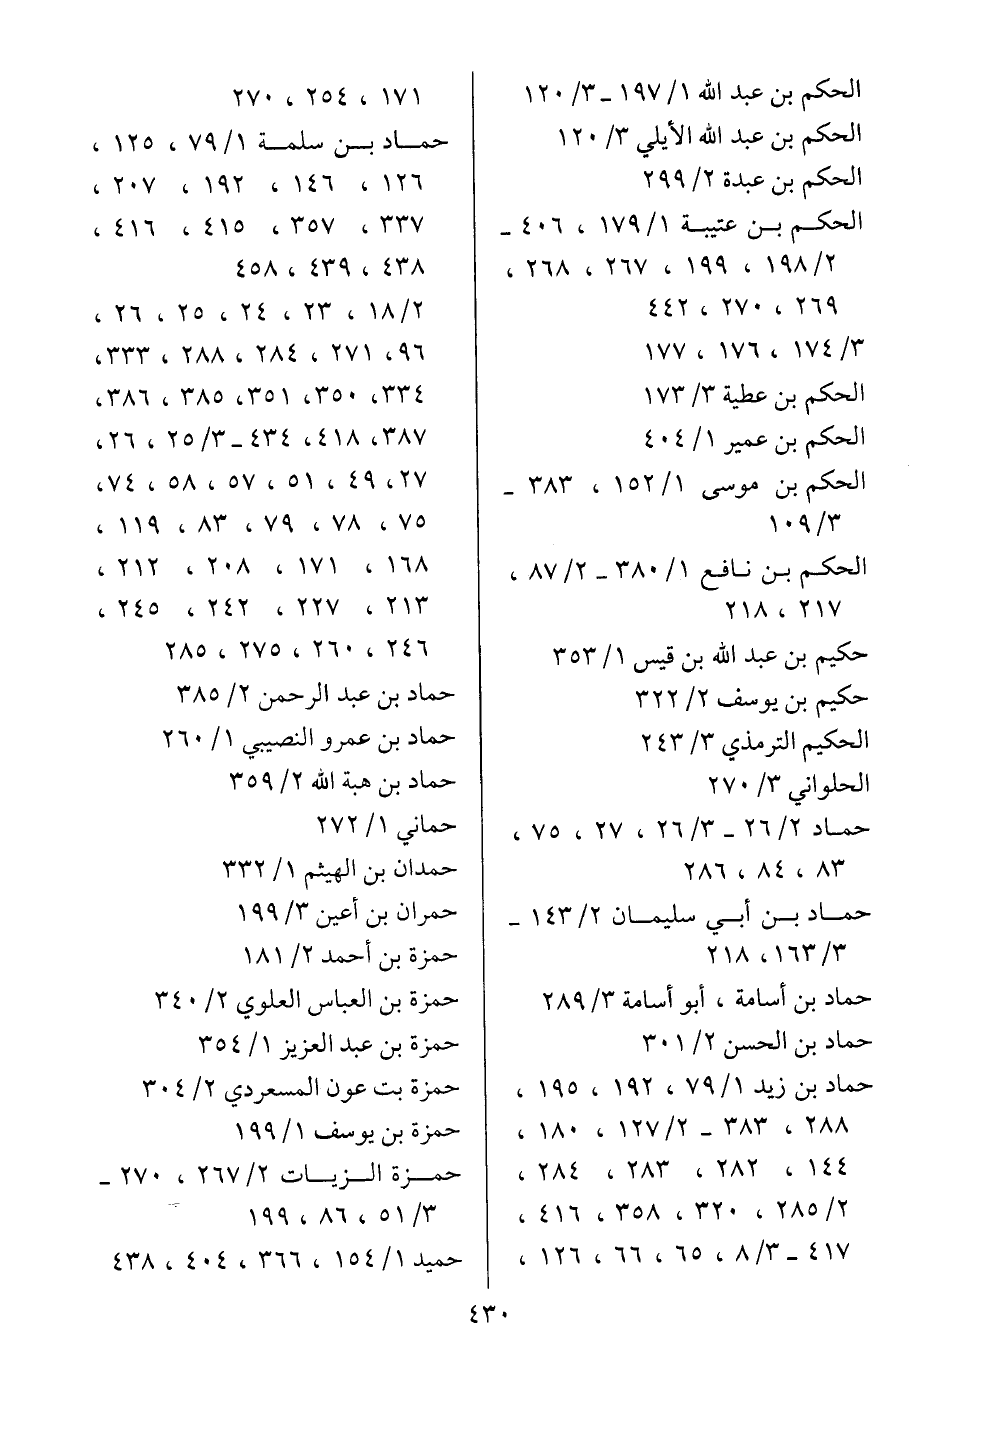 الحكم بن عبد الله ١/ ١٩٧ ـ ٣/ ١٢٠
الحكم بن عبد الله الأيلي ٣/ ١٢٠
الحكم بن عبدة ٢/ ٢٩٩
الحكم بن عتيبة ١/ ١٧٩ ، ٤٠٦ ـ
٢/ ١٩٨ ، ١٩٩ ، ٢٦٧ ، ٢٦٨ ،
٢٦٩ ، ٢٧٠ ، ٤٤٢
٣/ ١٧٤ ، ١٧٦ ، ١٧٧
الحكم بن عطية ٣/ ١٧٣
الحكم بن عمير ١/ ٤٠٤
الحكم بن موسى ١/ ١٥٢ ، ٣٨٣ ـ
٣/ ١٠٩
الحكم بن نافع ١/ ٣٨٠ ـ ٢/ ٨٧ ،
٢١٧ ، ٢١٨
حكيم بن عبد الله بن قيس ١/ ٣٥٣
حكيم بن يوسف ٢/ ٣٢٢
الحكيم الترمذي ٣/ ٢٤٣
الحلواني ٣/ ٢٧٠
حماد ٢/ ٢٦ ـ ٣/ ٢٦ ، ٢٧ ، ٧٥ ،
٨٣ ، ٨٤ ، ٢٨٦
حماد بن أبي سليمان ٢/ ١٤٣ ـ
٣/ ١٦٣ ، ٢١٨
حماد بن أسامة ، أبو أسامة ٣/ ٢٨٩
حماد بن الحسن ٢/ ٣٠١
حماد بن زيد ١/ ٧٩ ، ١٩٢ ، ١٩٥ ،
٢٨٨ ، ٣٨٣ ـ ٢/ ١٢٧ ، ١٨٠ ،
١٤٤ ، ٢٨٢ ، ٢٨٣ ، ٢٨٤ ،
٢/ ٢٨٥ ، ٣٢٠ ، ٣٥٨ ، ٤١٦ ،
٤١٧ ـ ٣/ ٨ ، ٦٥ ، ٦٦ ، ١٢٦ ،
١٧١ ، ٢٥٤ ، ٢٧٠
حماد بن سلمة ١/ ٧٩ ، ١٢٥ ،
١٢٦ ، ١٤٦ ، ١٩٢ ، ٢٠٧ ،
٣٣٧ ، ٣٥٧ ، ٤١٥ ، ٤١٦ ،
٤٣٨ ، ٤٣٩ ، ٤٥٨
٢/ ١٨ ، ٢٣ ، ٢٤ ، ٢٥ ، ٢٦ ،
٩٦ ، ٢٧١ ، ٢٨٤ ، ٢٨٨ ، ٣٣٣ ،
٣٣٤ ، ٣٥٠ ، ٣٥١ ، ٣٨٥ ، ٣٨٦ ،
٣٨٧ ، ٤١٨ ، ٤٣٤ ـ ٣/ ٢٥ ، ٢٦ ،
٢٧ ، ٤٩ ، ٥١ ، ٥٧ ، ٥٨ ، ٧٤ ،
٧٥ ، ٧٨ ، ٧٩ ، ٨٣ ، ١١٩ ،
١٦٨ ، ١٧١ ، ٢٠٨ ، ٢١٢ ،
٢١٣ ، ٢٢٧ ، ٢٤٢ ، ٢٤٥ ،
٢٤٦ ، ٢٦٠ ، ٢٧٥ ، ٢٨٥
حماد بن عبد الرحمن ٢/ ٣٨٥
حماد بن عمرو النصيبي ١/ ٢٦٠
حماد بن هبة الله ٢/ ٣٥٩
حماني ١/ ٢٧٢
حمدان بن الهيثم ١/ ٣٣٢
حمران بن أعين ٣/ ١٩٩
حمزة بن أحمد ٢/ ١٨١
حمزة بن العباس العلوي ٢/ ٣٤٠
حمزة بن عبد العزيز ١/ ٣٥٤
حمزة بت عون المسعردي ٢/ ٣٠٤
حمزة بن يوسف ١/ ١٩٩
حمزة الزيات ٢/ ٢٦٧ ، ٢٧٠ ـ
٣/ ٥١ ، ٨٦ ، ١٩٩
حميد ١/ ١٥٤ ، ٣٦٦ ، ٤٠٤ ، ٤٣٨
٤٣٠